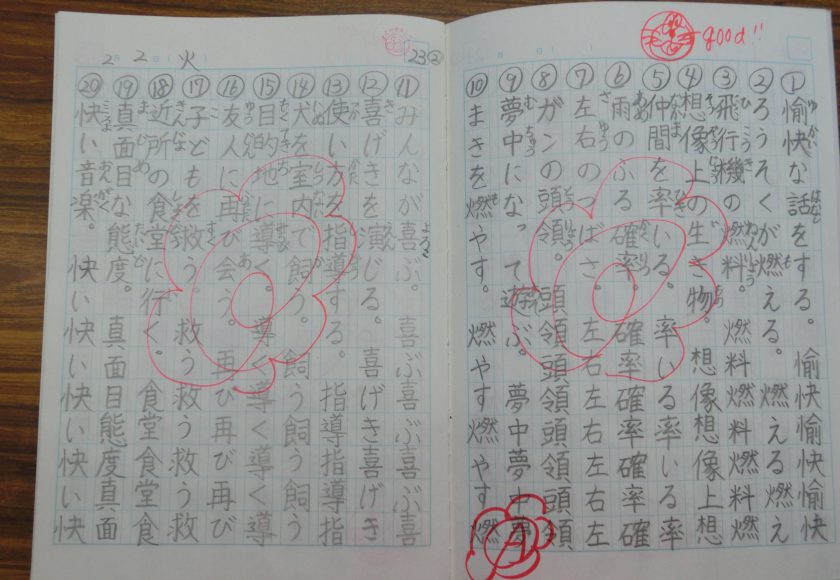 good!!
①愉快な話をする。 愉快愉快愉快
②ろうそくが燃える。 燃える燃え
③飛行機の燃料。 燃料燃料燃料燃
④想像上の生き物。 想像想像上想
⑤仲間を率いる。 率いる率いる率
⑥雨のふる確率。 確率確率確率確
⑦左右のつばさ。 左右左右左右左
⑧ガンの頭領。 頭領頭領頭領頭領
⑨夢中になって遊ぶ。 夢中夢中
⑩まきを燃やす。 燃やす燃やす燃
2月2日(火)
23②
⑪みんなが喜ぶ。 喜ぶ喜ぶ喜ぶ喜
⑫喜げきを演じる。 喜げき喜げき
⑬使い方を指導する。 指導指導指
⑭犬を室内で飼う。 飼う飼う飼う
⑮目的地に導く。 導く導く導く導
⑯友人に再び会う。 再び再び再び
⑰子どもを救う。 救う救う救う救
⑱近所の食堂に行く。 食堂食堂食
⑲真面目な態度。 真面目態度真面
⑳快い音楽。 快い快い快い快い快